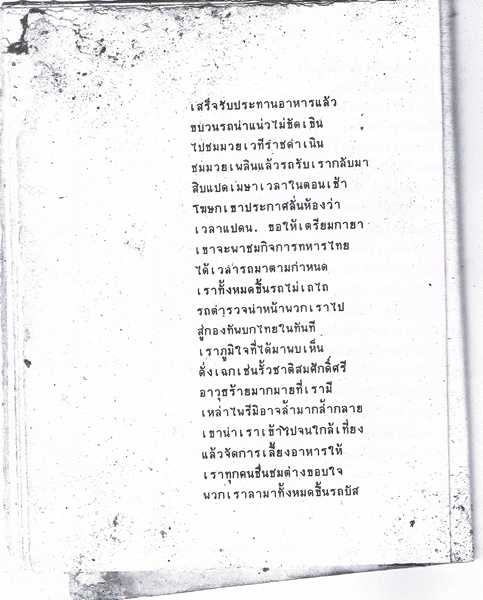 เสร็จรับประทานอาหารแล้ว
ขบวนรถนำแน่วไม่ขัดเขิน
ไปชมมวยเวทีราชดำเนิน
ชมมวยเพลินแล้วรถรับเรากลับมา
สิบแปดเมษาเวลาในตอนเช้า
โฆษกเขาประกาศลั่นห้องว่า
เวลาแปดน. ขอให้เตรียมกายา
เขาจะพาชมกิจการทหารไทย
ได้เวลารถมาตามกำหนด
เราทั้งหมดขึ้นรถไม่เถไถ
รถตำรวจนำหน้าพวกเราไป
สู่กองทัพบกไทยในทันที
เราภูมิใจที่ได้มาพบเห็น
ดั่งเฉกเช่นรั้วชาติสมศักดิ์ศรี
อาวุธร้ายมากมายที่เรามี
เหล่าไพรีมิอาจล้ามากล้ำกลาย
เขานำเราเข้าไปจนใกล้เที่ยง
แล้วจัดการเลี้ยงอาหารให้
เราทุกคนชื่นชมต่างขอบใจ
พวกเราลามาทั้งหมดขึ้นรถบัส